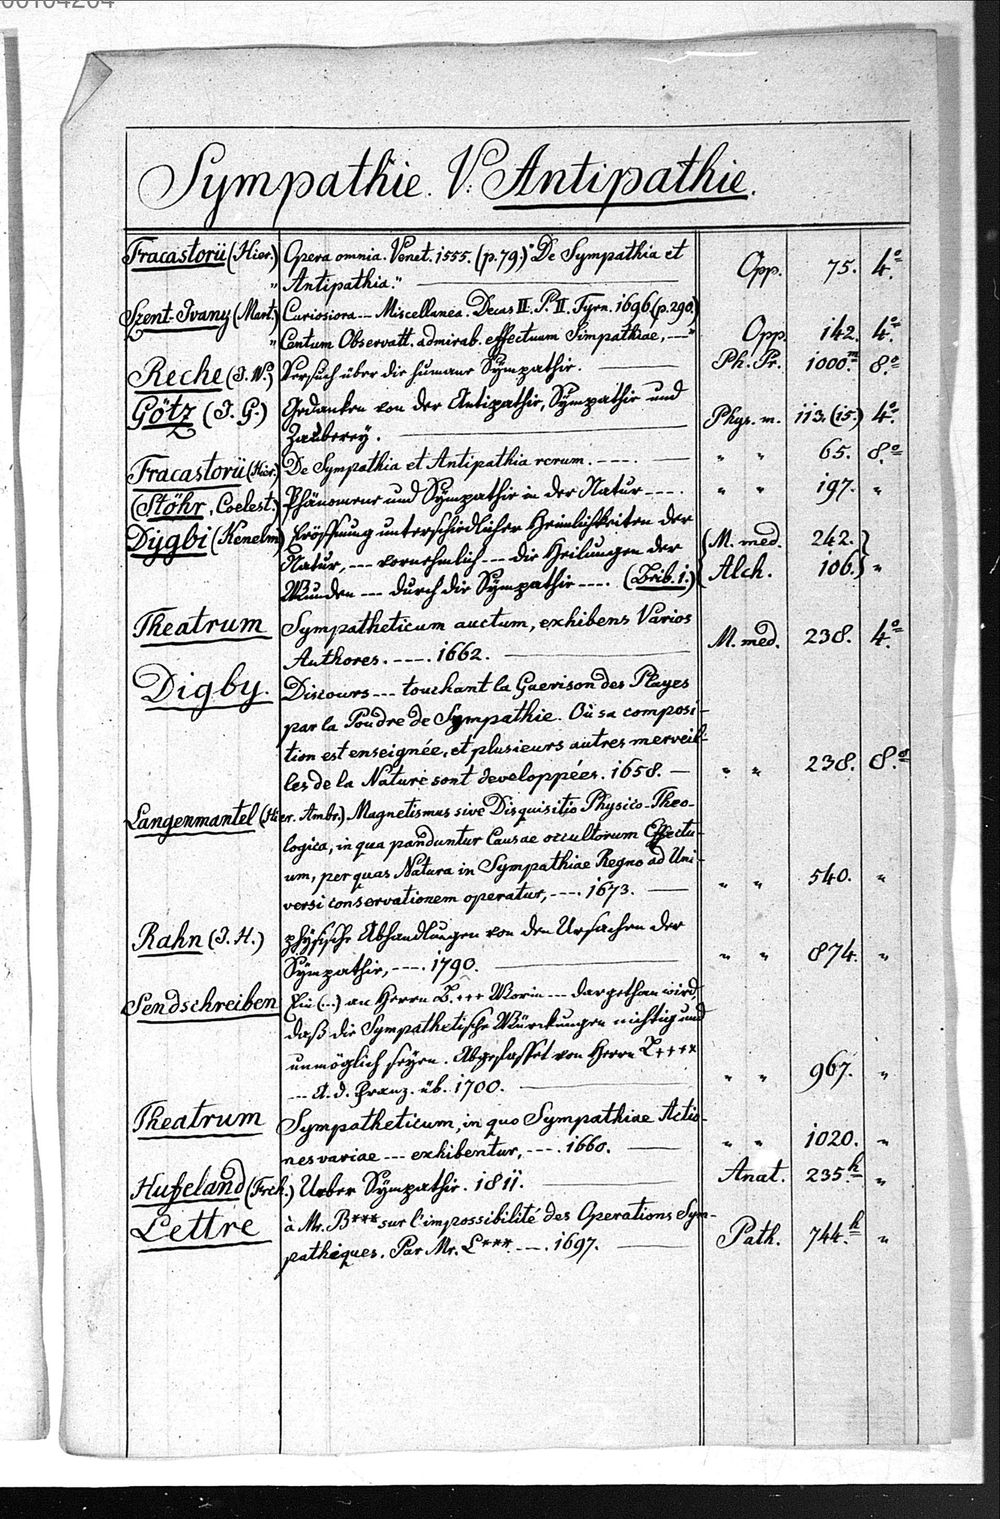 Sympathie. V: Antipathie.
Fracastorii (Hier.) Opera omnia. Venet. 1555. (p. 79.) "De Sympathia et
" Antipathia." Opp. 75. 4.o
Szent-Ivany (Mart.) Curiosiora -- Miscellanea. Decas II. P. II. Tyrn. 1696 (p. 290.)
" Centum Observatt. admirab. effectuum Simpathiae, --" Opp. 142. 4.o
Reche (J. W.) Versuch über die humane Sympathie. Ph. Pr. 1000.m 8.o
Götz (J. G.) Gedanken von der Antipathie, Sympathie und
Zauberey. Phys. m. 113. (15.) 4.o
Fracastorii (Hier.) De Sympathia et Antipathia rerum. ---- " " 65. 8.o
(Stöhr, Coelest.) Phänomene und Sympathie in der Natur ---. " " 197. "
Dygbi (Kenelm) Eröffnung unterschiedlicher Heimlichkeiten der
Natur, --- vornehmlich --- die Heilungen der { M. med. 242. }
Wunden --- durch die Sympathie ---. (Beib. 1.) { Alch. 106. } "
Theatrum Sympatheticum auctum, exhibens Varios
Authores. ---. 1662. M. med. 238. 4.o
Digby. Discours --- touchant la Guerison des Playes
par la Poudre de Sympathie. Où sa composi-
tion est enseignée, et plusieurs autres merveil-
les de la Nature sont developpées. 1658. " " 238. 8.o
Langenmantel (Hier. Ambr.) Magnetismus sive Disquisitio Physico-Theo-
logica, in qua panduntur Causae occultorum Effectu-
um, per quas Natura in Sympathiae Regno ad Uni-
versi conservationem operatur, ---. 1673. " " 540. "
Rahn (J. H.) physische Abhandlungen von den Ursachen der
Sympathie, ---. 1790. " " 874. "
Sendschreiben Ein (...) an Herrn B.+++ Morin --- dargethan wird,
daß die Sympathetische Würckungen nichtig und
unmöglich seyen. Abgefasset von Herrn L++++
--- A. d. Franz. üb. 1700. " " 967. "
Theatrum Sympatheticum, in quo Sympathiae Actio-
nes variae --- exhibentur, ---. 1660. " " 1020. "
Hufeland (Frch.) Ueber Sympathie. 1811. Anat. 235.h "
Lettre à Mr. B*** sur l'impossibilité des Operations Sym-
pathiques. Par Mr. L*** ---. 1697. Path. 744.h "